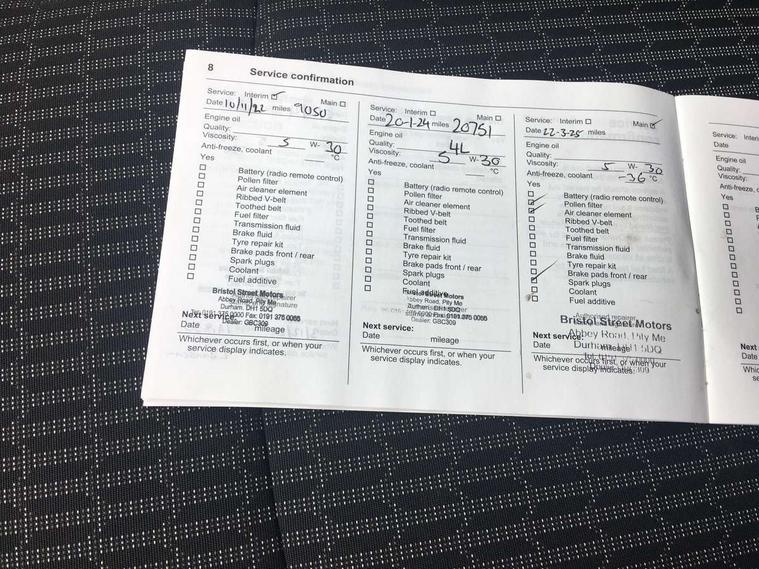 8 Service confirmation
Service: Interim ☑ Main ☐
Date 10/11/22 miles 9050
Engine oil
Quality:
Viscosity: 5 W- 30
Anti-freeze, coolant °C
Yes
☐ Battery (radio remote control)
☐ Pollen filter
☐ Air cleaner element
☐ Ribbed V-belt
☐ Toothed belt
☐ Fuel filter
☐ Transmission fluid
☐ Brake fluid
☐ Tyre repair kit
☐ Brake pads front / rear
☐ Spark plugs
☐ Coolant
☐ Fuel additive
Bristol Street Motors
Abbey Road, Pity Me
Durham. DH1 5DQ
Tel: 0191 375 0000 Fax: 0191 375 0055
Dealer: GBC309
Next service:
Date mileage
Whichever occurs first, or when your
service display indicates.
Service: Interim ☐ Main ☐
Date 20-1-24 miles 20751
Engine oil
Quality: 4L
Viscosity: 5 W- 30
Anti-freeze, coolant °C
Yes
☐ Battery (radio remote control)
☐ Pollen filter
☐ Air cleaner element
☐ Ribbed V-belt
☐ Toothed belt
☐ Fuel filter
☐ Transmission fluid
☐ Brake fluid
☐ Tyre repair kit
☐ Brake pads front / rear
☐ Spark plugs
☐ Coolant
☐ Fuel additive
Bristol Street Motors
Abbey Road, Pity Me
Durham. DH1 5DQ
Fax: 0191 375 0055
Dealer: GBC309
Next service:
Date mileage
Whichever occurs first, or when your
service display indicates.
Service: Interim ☐ Main ☑
Date 22-3-25 miles
Engine oil
Quality:
Viscosity: 5 W- 30
Anti-freeze, coolant -36 °C
Yes
☐ Battery (radio remote control)
☑ Pollen filter
☐ Air cleaner element
☐ Ribbed V-belt
☐ Toothed belt
☐ Fuel filter
☐ Transmission fluid
☐ Brake fluid
☐ Tyre repair kit
☐ Brake pads front / rear
☑ Spark plugs
☐ Coolant
☐ Fuel additive
Authorised repairer
Bristol Street Motors
Abbey Road, Pity Me
Durham DH1 5DQ
Next service:
Date mileage
Whichever occurs first, or when your
service display indicates.
Service:
Date
Engine oil
Quality:
Viscosity:
Yes
Next
Date